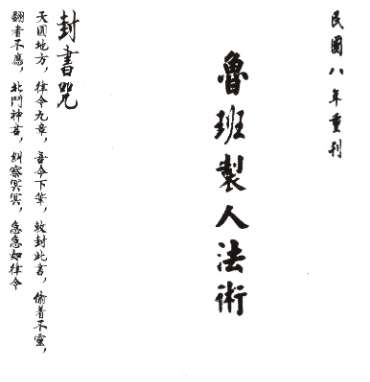 民國八年重刊
魯班製人法術
封書咒
天圓地方，律令九章，吾今下筆，敕封此書，偷看不靈，
翻者不應，北鬥神書，糾察冥冥，急急如律令